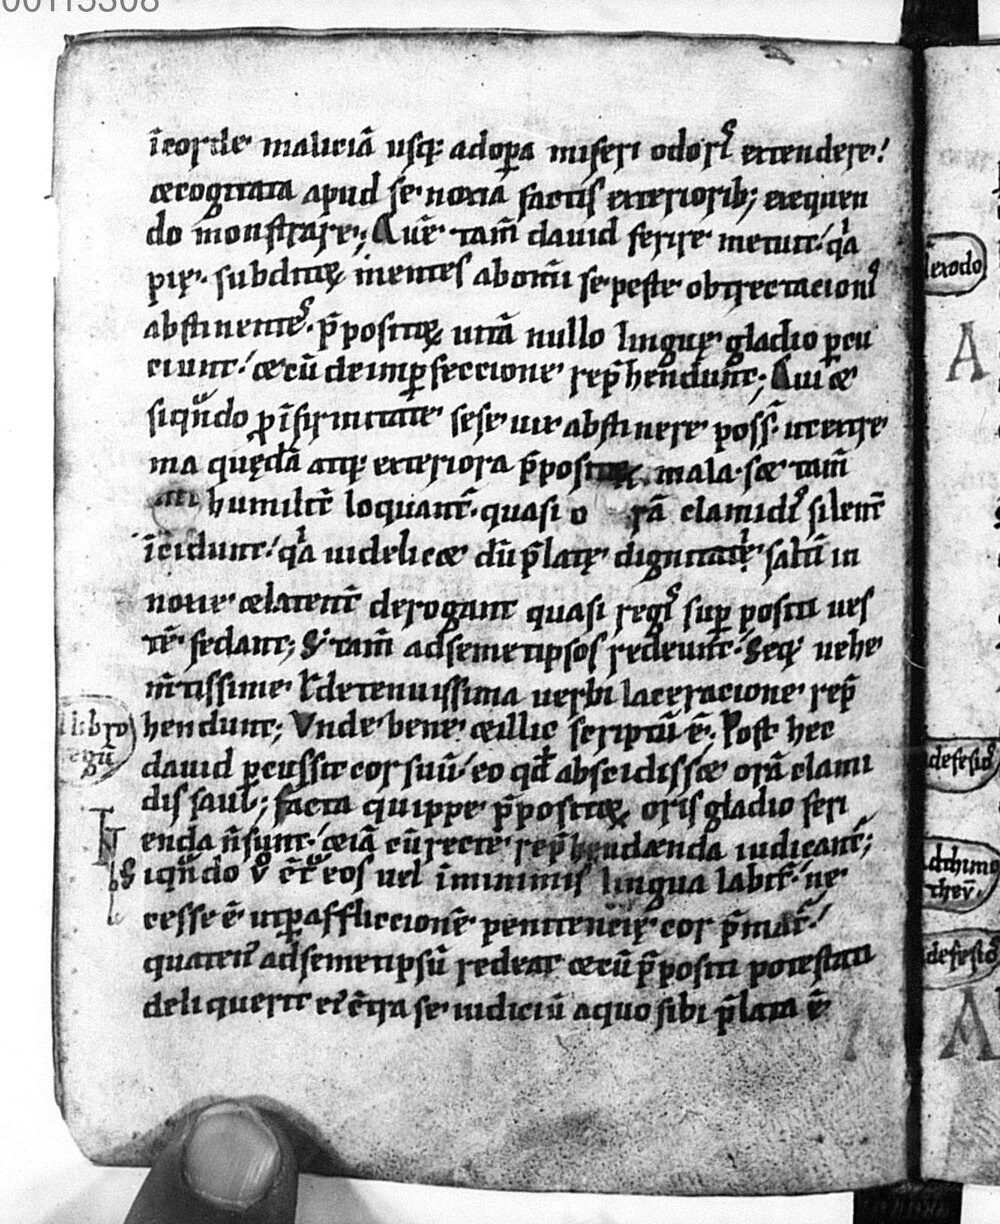 00115308
ĩcorde maliciã usq; adoꝑa miseri odoris extendere!
&cogitata apud se noxia factis exteriorib; exequen
do monstrare; Quẽ tam̃ dauid ferire metuit qͥa
pie subditoꝝ mentes abom̃i se peste obtrectacionis
abstinentes. p̃positoꝝ uitã nullo linguę gladio ꝑcu
ciunt &cũ deimꝑfeccione rep̃hendunt; Qui &
siqͣndo ꝑ ĩfirmitate sese uix abstinere poss̃ utextre
ma quędã atq; exteriora p̃positoꝝ mala s& tam̃
humilit̃ loquant̃ quasi o rã clamidis silent̃
ĩcidunt qͥa uidelic& dũ p̃latę dignitati saltũ in
noxie &latent̃ derogant quasi regis suꝑ positi ues
tẽ fedant; S; tam̃ adsemetipsos redeunt. Seq; uehe
m̃tissime ł detenuissima uerbi laceracione rep̃
hendunt; Vnde bene &illic scriptũ ẽ; Post hec
dauid ꝑcussit cor suũ eo qđ abscidiss& orã clami
dis saul; facta quippe p̃positoꝝ oris gladio feri
enda ñ sunt &iã cũ recte rep̃hendænda iudicant̃;
Siqͣndo ṽ c̃tͣ eos uel ĩminimis lingua labit̃ ne
cesse ẽ utꝑ affliccionẽ penitencię cor p̃mat̃
quaten adsemetipsũ redeat &cũ p̃positi potestati
deliquerit ei c̃tͣra se iudiciũ aquo sibi p̃lata ẽ
libro
egũ
exodo
A
defesio
Adthimo
theũ
defesio
A